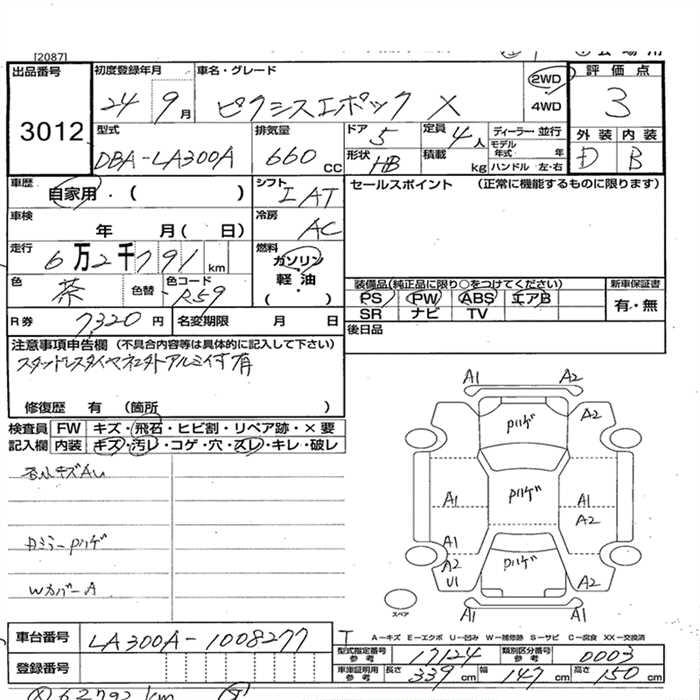 [2087]
出品番号
3012
初度登録年月 車名・グレード
24 9月 ピクシスエポック X
2WD
4WD
評価点
3
外装 内装
D B
型式 排気量 ドア 定員 ディーラー・並行
DBA-LA300A 660cc 5 4人
モデル年式 年
形状 積載 ハンドル 左・右
HB kg
車歴 自家用・( )
シフト IAT
セールスポイント (正常に機能するものに限ります)
車検 年 月( 日)
冷房 AC
走行 6万2千791km
燃料 ガソリン
軽・油
( )
色 茶 色替 色コード R59
装備品(純正品に限り○をつけてください) 新車保証書
PS PW ABS エアB 有・無
SR ナビ TV
R券 7320円 名変期限 月 日
後日品
注意事項申告欄 (不具合内容等は具体的に記入して下さい)
スタッドレスタイヤ
有
修復歴 有 (箇所 )
検査員 FW キズ・飛石・ヒビ割・リペア跡・×要
記入欄 内装 キズ・汚レ・コゲ・穴・スレ・キレ・破レ
A1 A2
A1 A2
Pハゲ
A1 Pハゲ A1
A2
A1
A2
U1
Pハゲ
A2
A1 A1
スペア
DミラーPハゲ
WカバーA
車台番号 LA300A-1008277
登録番号
A-キズ E-エクボ U-凹み W-補修跡 S-サビ C-腐食 XX-交換済
型式指定番号 参考 17124 類別区分番号 参考 0003
車庫証明用 参考 長さ 339cm 幅 147cm 高さ 150cm
62792km